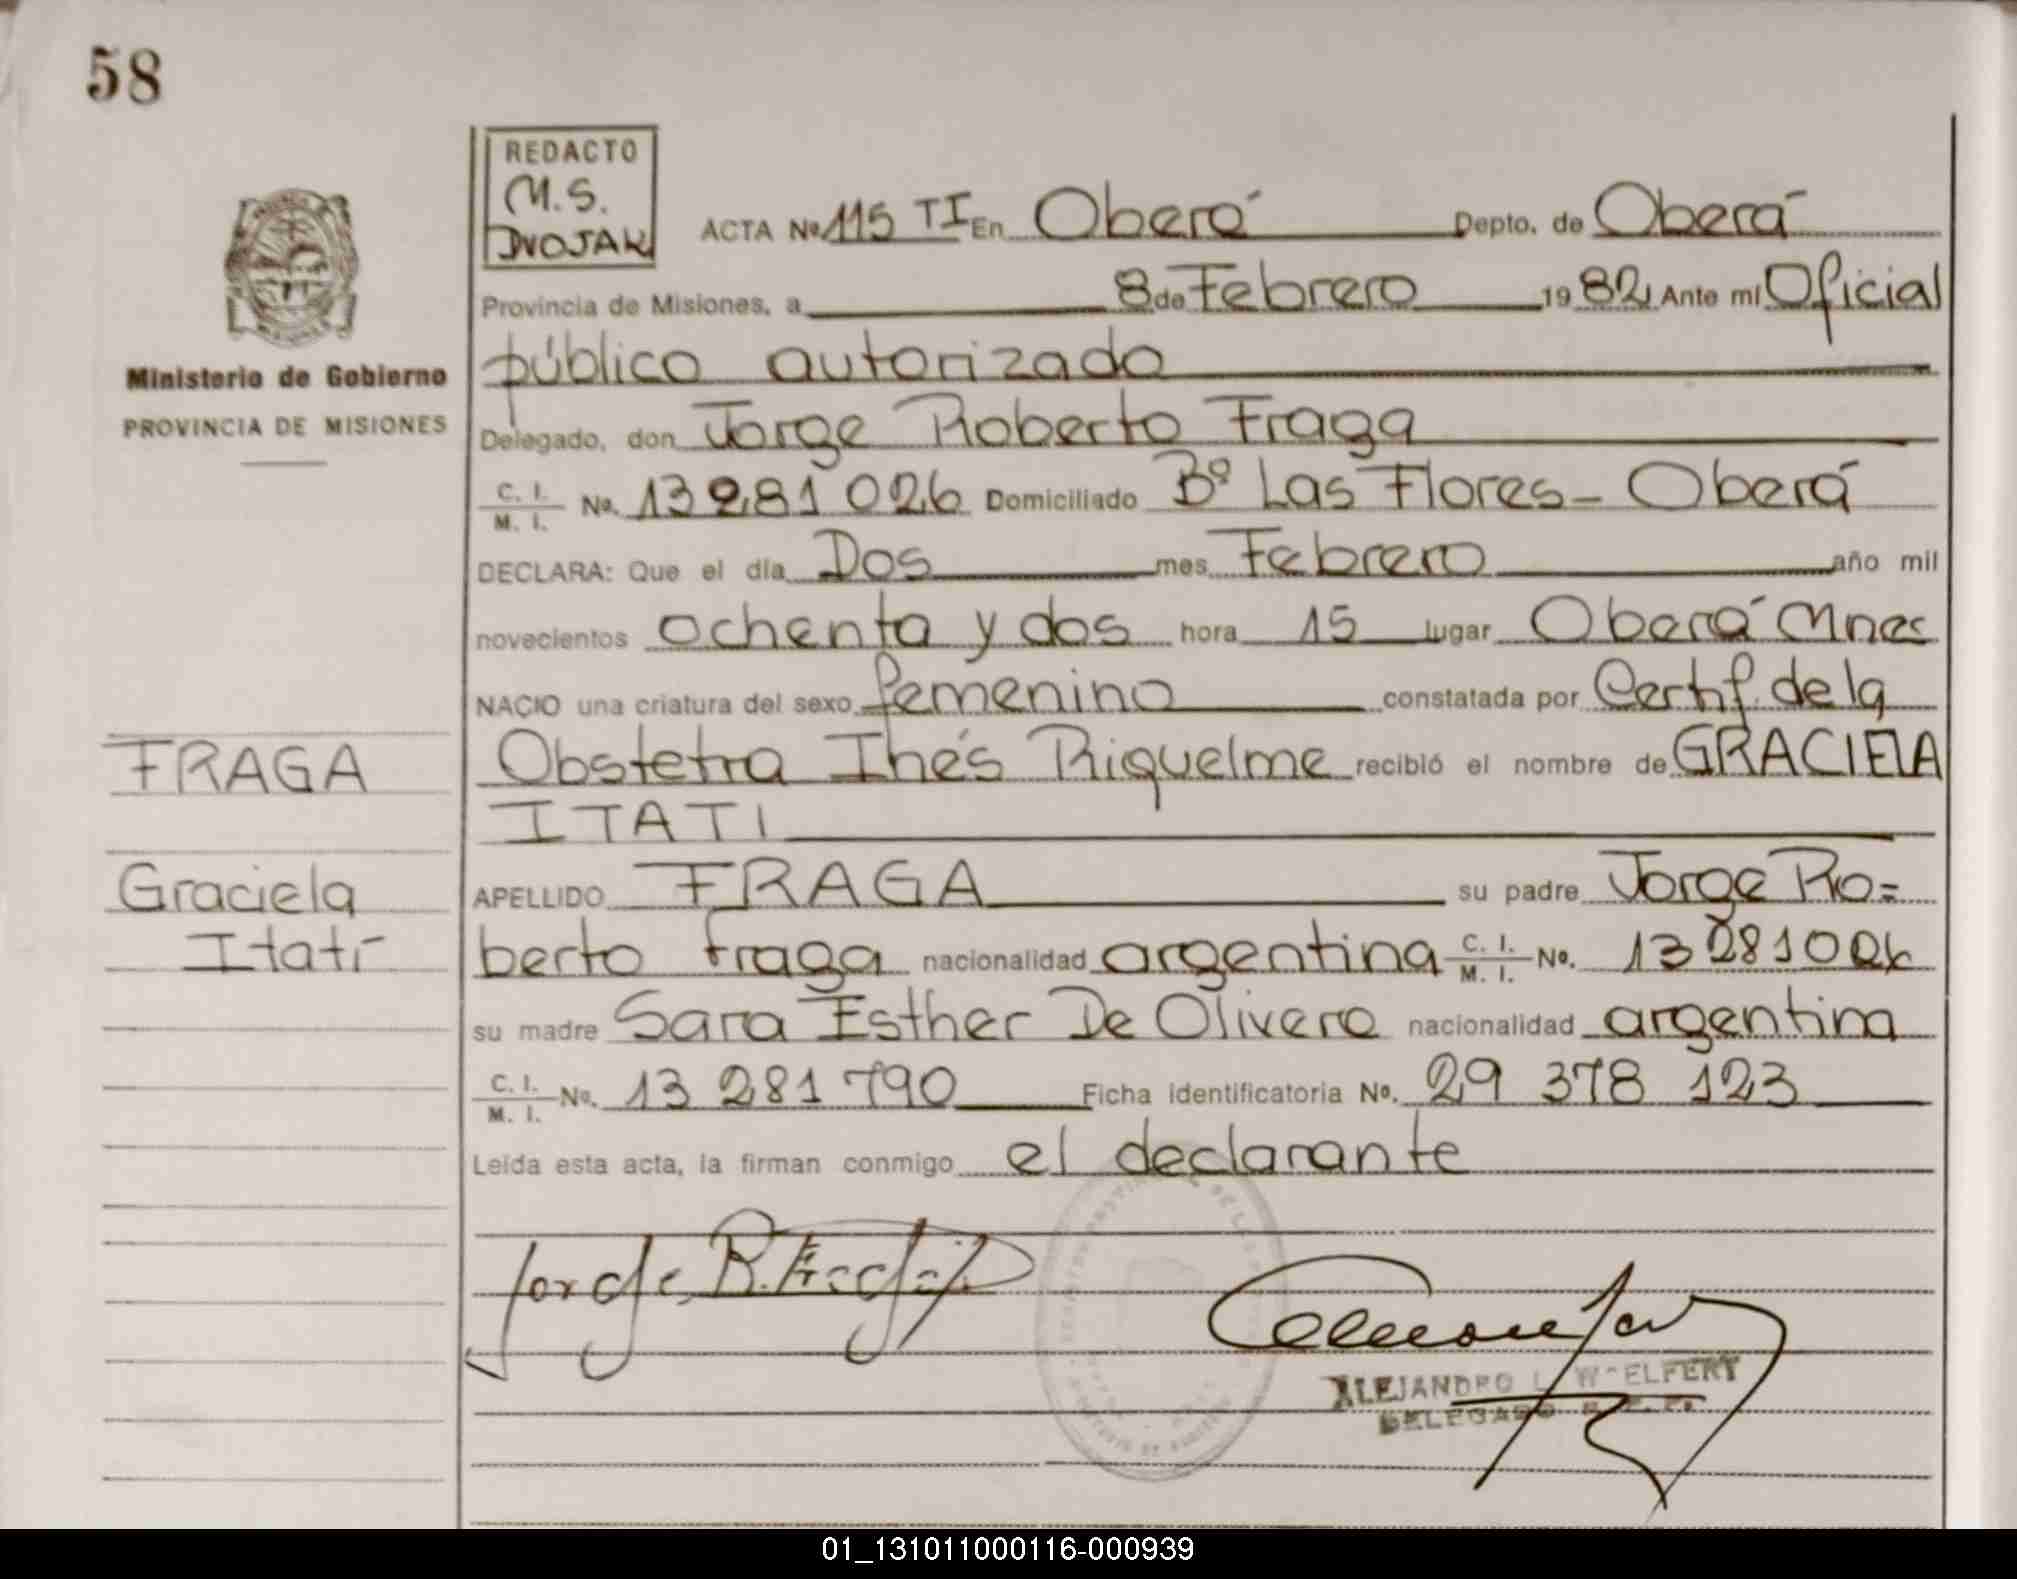 58
REDACTO
M.S.
DVOJAK
ACTA No 115 TI En Oberá Depto. de Oberá
Provincia de Misiones, a 8 de Febrero 1982 Ante mí Oficial
público autorizado
Ministerio de Gobierno
PROVINCIA DE MISIONES
Delegado, don Jorge Roberto Fraga
C. I. / M. I. No. 13 281 026 Domiciliado Bº Las Flores - Oberá
DECLARA: Que el día Dos mes Febrero año mil
novecientos ochenta y dos hora 15 lugar Oberá Mnes
NACIO una criatura del sexo femenino constatada por Certif. de la
Obstetra Inés Riquelme recibió el nombre de GRACIELA
ITATI
FRAGA
Graciela
Itatí
APELLIDO FRAGA su padre Jorge Ro=
berto Fraga nacionalidad argentina C. I. / M. I. No. 13 281 026
su madre Sara Esther De Olivera nacionalidad argentina
C. I. / M. I. No. 13 281 790 Ficha identificatoria No. 29 378 123
Leída esta acta, la firman conmigo el declarante
Jorge R. Fraga
ALEJANDRO L. WOELFERT
DELEGADO
01_131011000116-000939